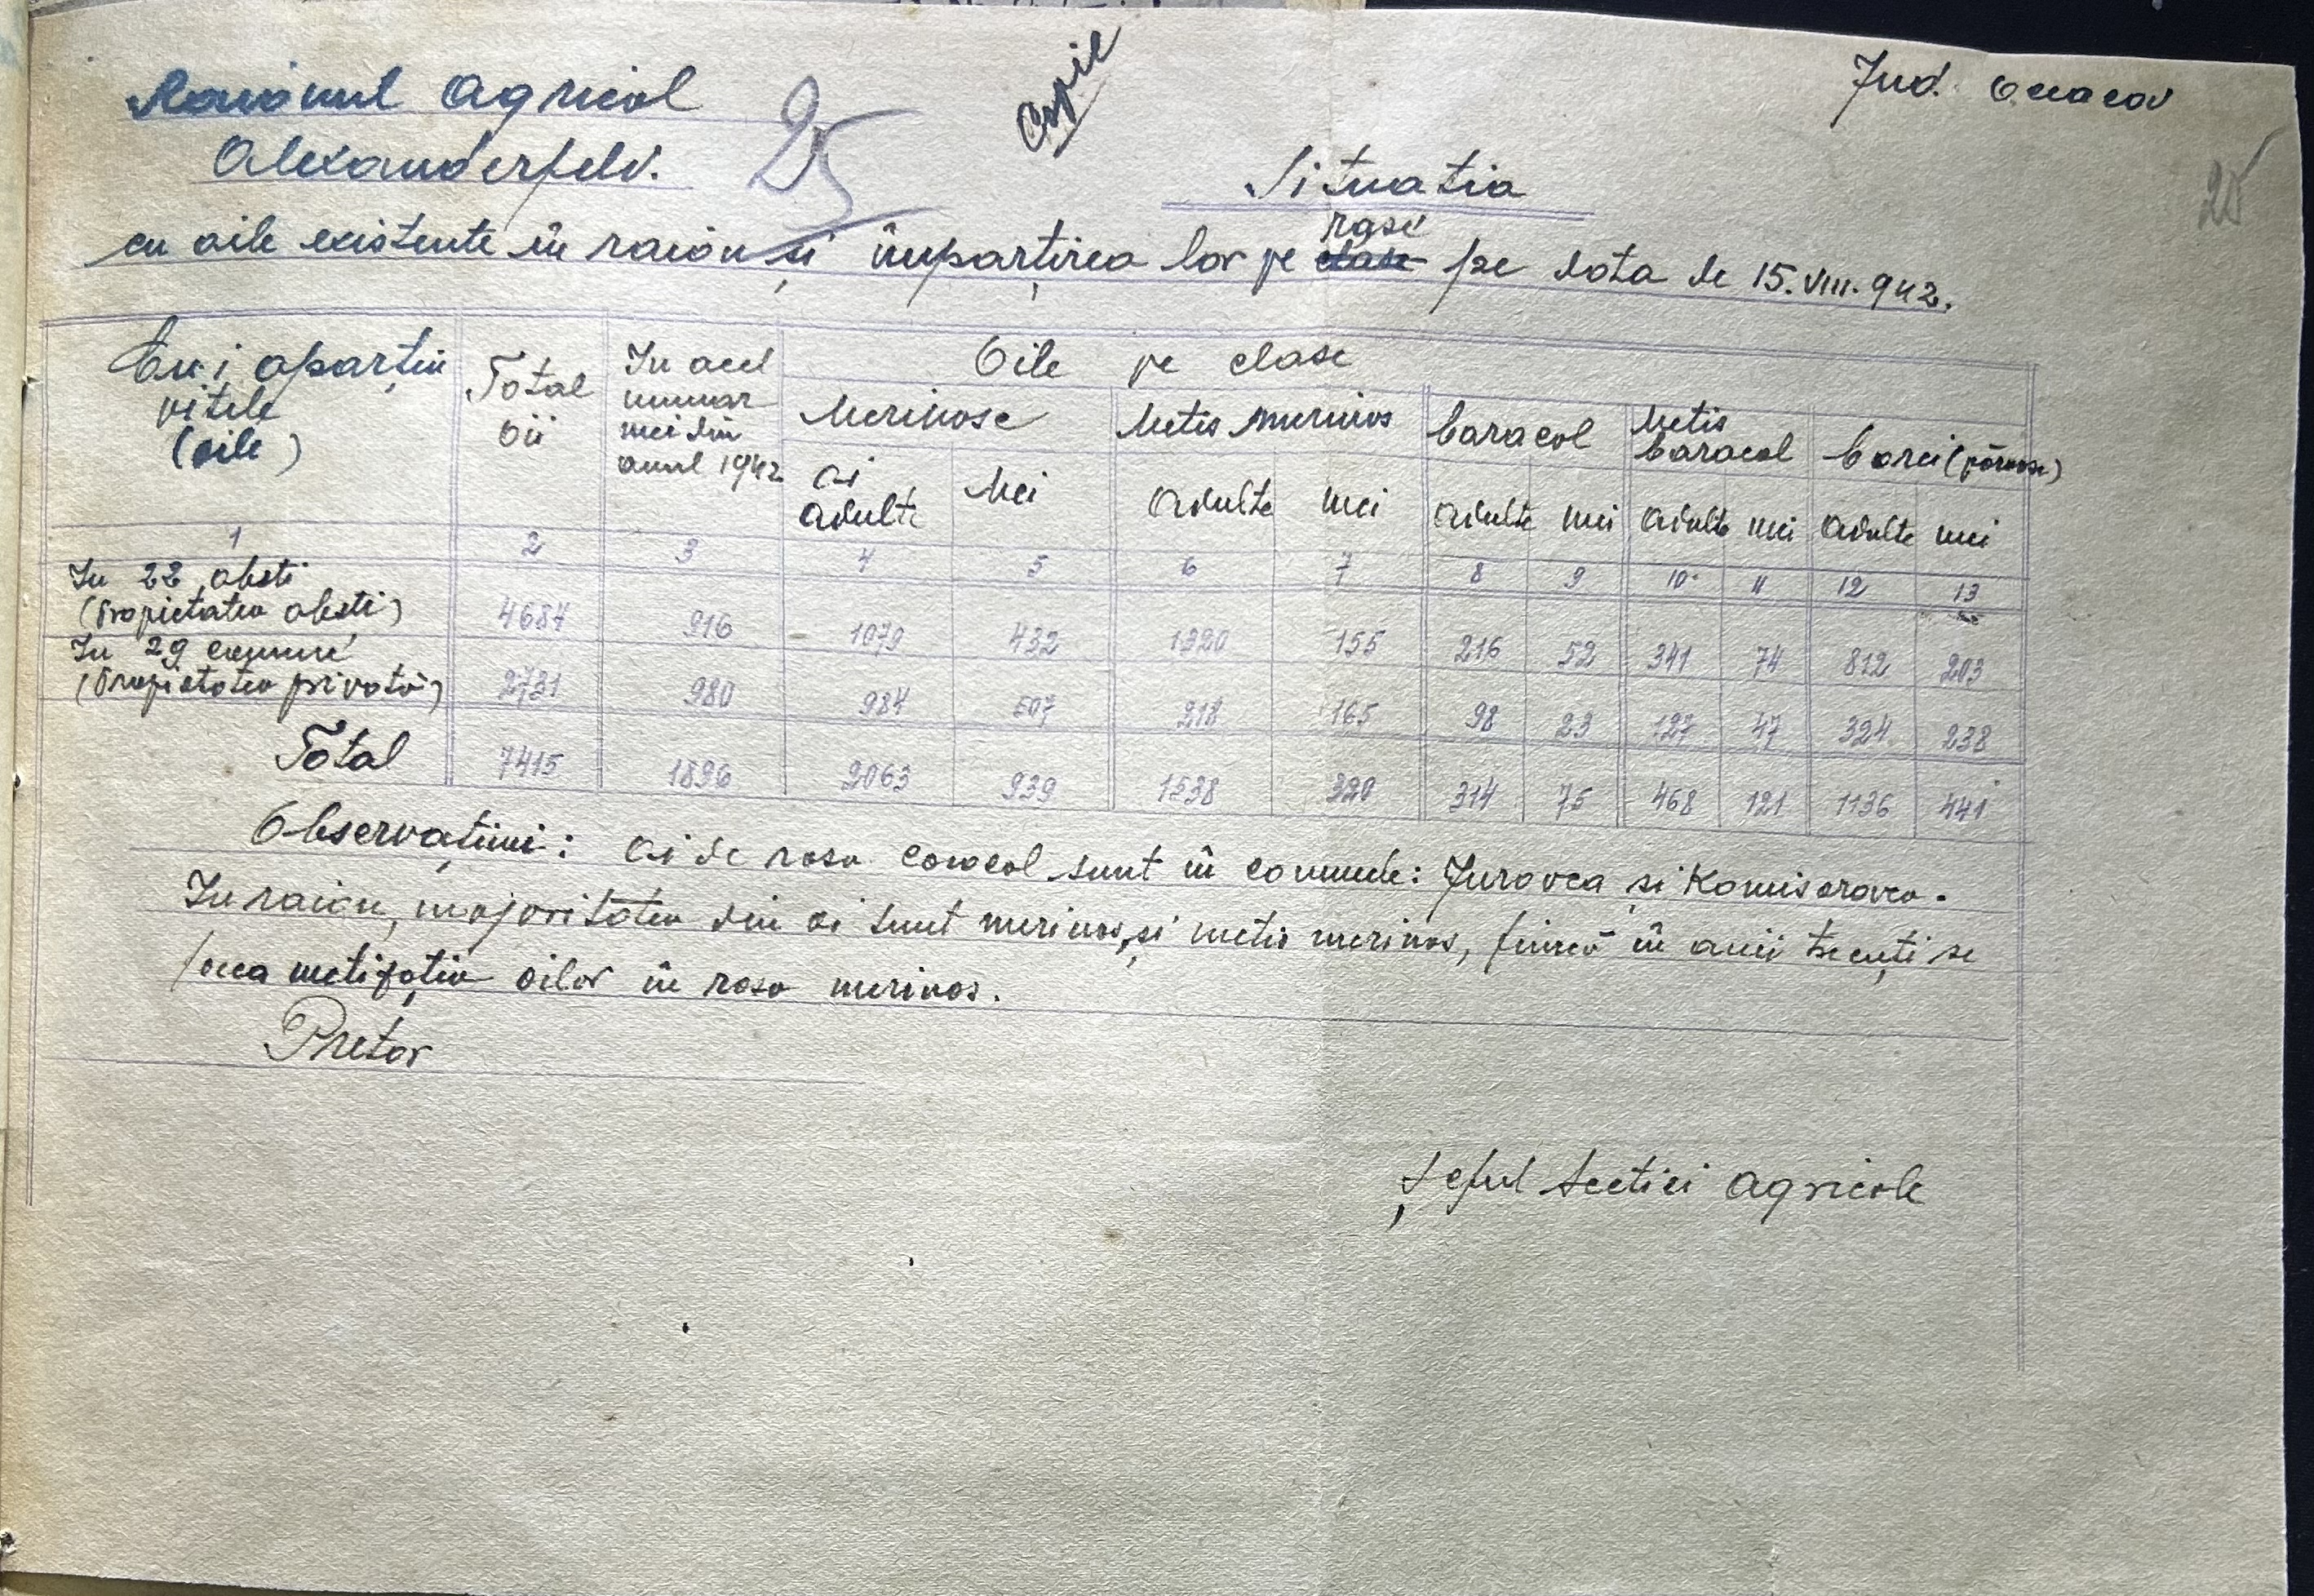 Raionul Agricol
Alexanderfeld.
25
Copie
Jud. Oceacov
25
Situatia
cu oile existente în raion și împarțirea lor pe clase rase pe data de 15.VIII.942.
Cui aparțin vitele (oile)
Total oi
In acel numar mei din anul 1942
Oile pe clase
Merinose
Metis merinos
Caracol
Metis Caracol
Corci (păroase)
oi adulte
Mei
adulte
mei
adulte
mei
adulte
mei
adulte
mei
1 2 3 4 5 6 7 8 9 10 11 12 13
In 22 obsti (Propietatea obsti) 4684 916 1079 432 1320 155 216 52 341 74 812 203
In 29 comune (Propietatea privată) 2731 980 984 507 218 165 98 23 127 47 324 238
Total 7415 1896 2063 939 1538 320 314 75 468 121 1136 441
Observațiuni: oi de rasa caracol sunt în comunele: Jurovca și Komisarovca.
In raion, majoritatea din oi sunt merinos, și metis merinos, fiincă în anii trecuți se
facea metizația oilor în rasa merinos.
Pretor
Șeful Sectiei agricole